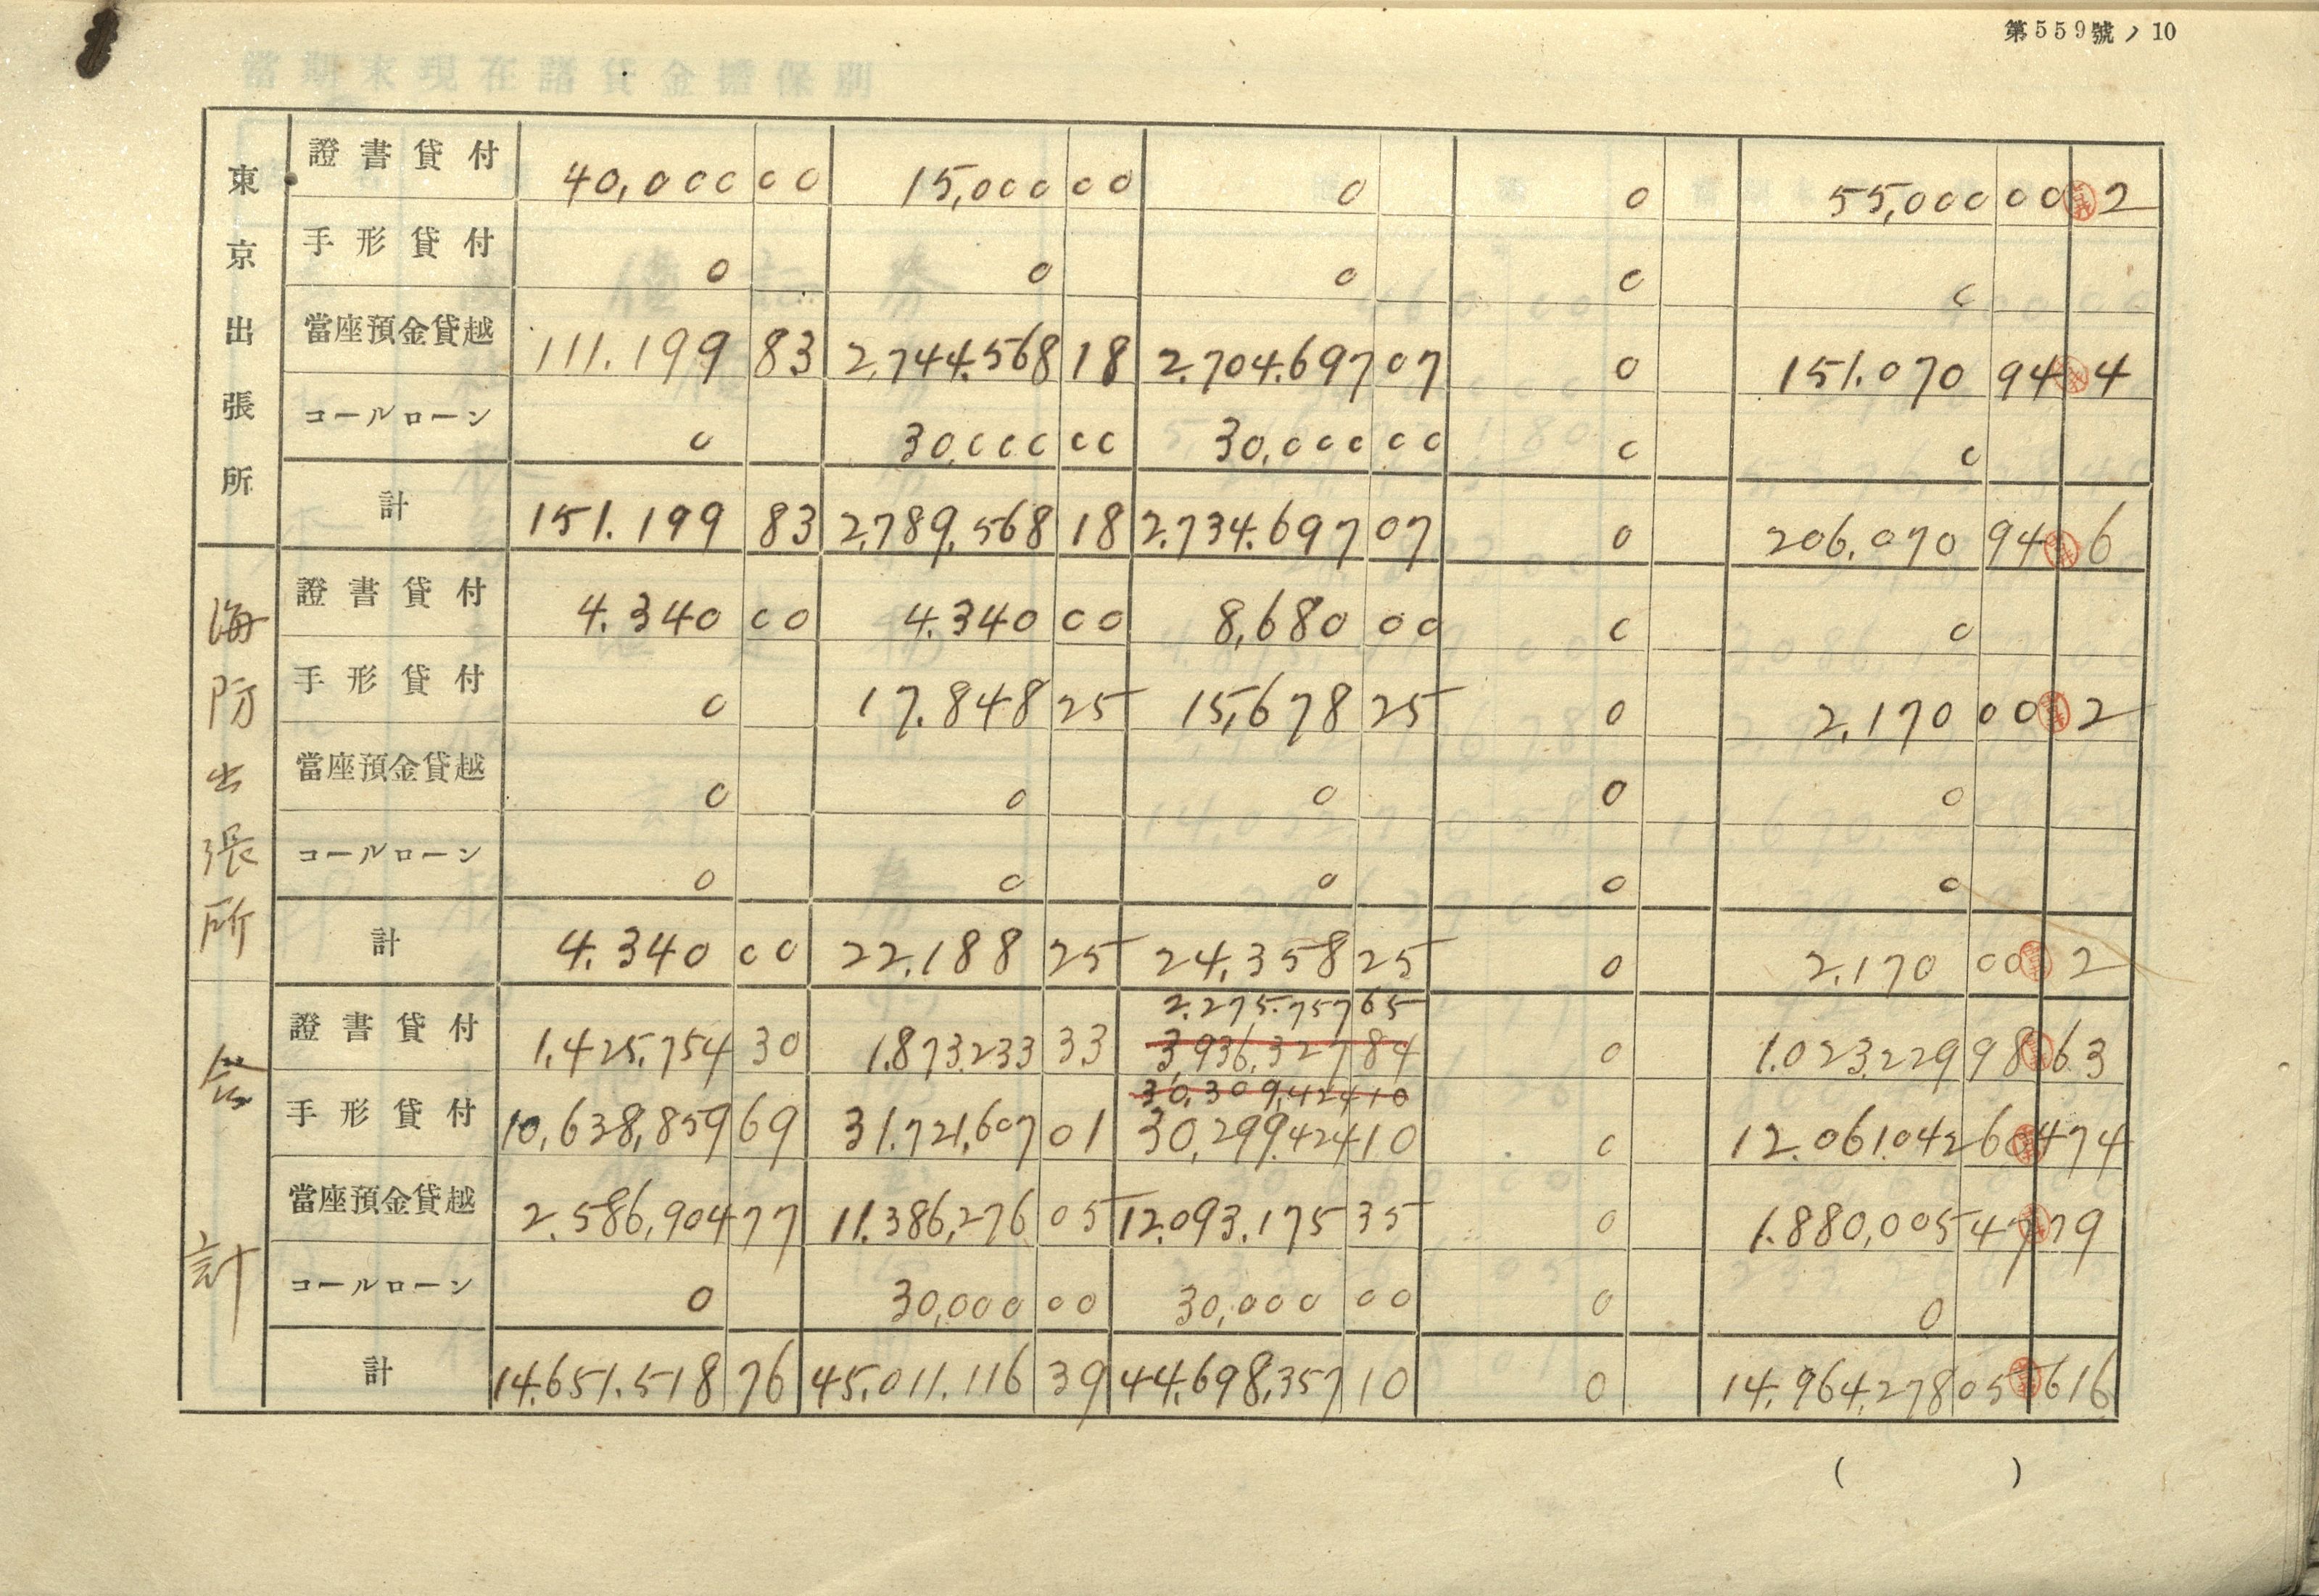 第559號ノ10
東京出張所
證書貸付 40,000 00 15,000 00 0 0 55,000 00 2
手形貸付 0 0 0 0 0
當座預金貸越 111.199 83 2,744.568 18 2.704.697 07 0 151.070 94 4
コールローン 0 30,000 00 30,000 00 0 0
計 151.199 83 2,789,568 18 2.734.697 07 0 206.070 94 6
海防出張所
證書貸付 4.340 00 4.340 00 8,680 00 0 0
手形貸付 0 17.848 25 15,678 25 0 2,170 00 2
當座預金貸越 0 0 0 0 0
コールローン 0 0 0 0 0
計 4.340 00 22.188 25 24.358 25 0 2.170 00 2
合計
2.275.757 65
證書貸付 1,425,754 30 1.873.233 33 3,936,327 84 0 1.023.229 98 63
30,309,424 10
手形貸付 10,638,859 69 31.721,607 01 30,299.424 10 0 12.061.042 60 474
當座預金貸越 2.586,904 77 11.386,276 05 12.093.175 35 0 1.880,005 47 79
コールローン 0 30,000 00 30,000 00 0 0
計 14.651.518 76 45.011.116 39 44.698,357 10 0 14.964.278 05 616
( )